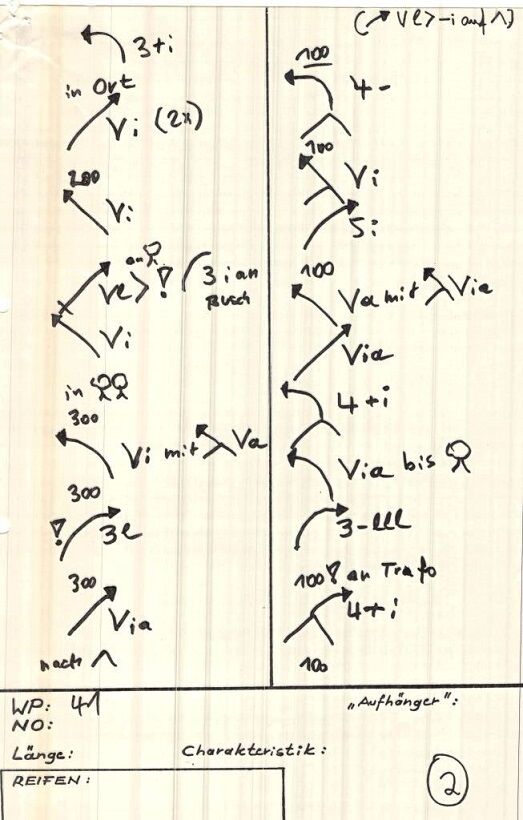 3+i
in Ort
Vi (2x)
200
Vi
an
Ve > ! (3 i an
Busch
Vi
in
300
Vi mit Va
300
! 3e
300
Via
nach ^
( Ve > -i auf ^ )
100
4-
100
Vi
5i
100
Va mit Via
Via
4+i
Via bis
3-lll
100 ! an Trafo
4+i
100
WP: 41
NO:
Länge:
Charakteristik:
"Aufhänger":
REIFEN:
2